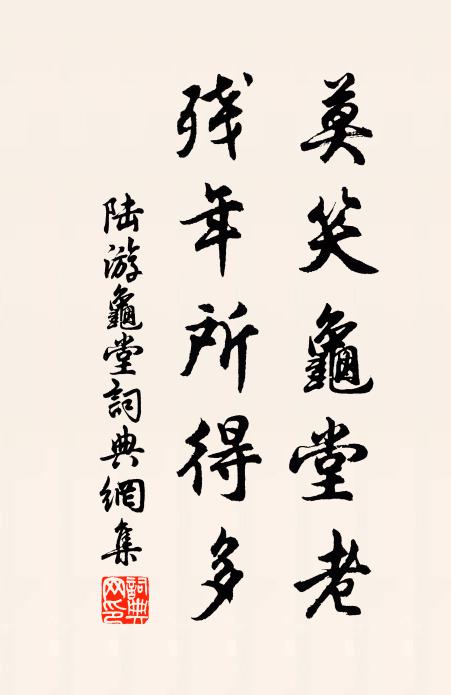 莫笑龜堂老
残年所得多
陆游龜堂詞典網集
詞典網印